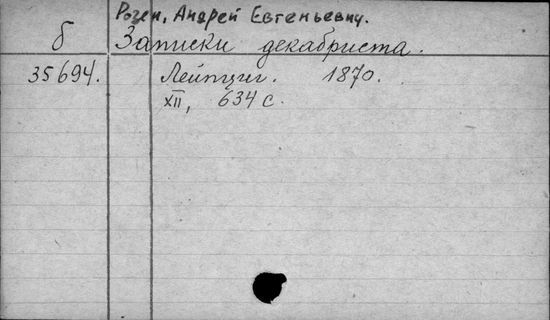 Розен, Андрей Евгеньевич.
б Записки декабриста.
35694. Лейпциг. 1870.
XII, 634 с.